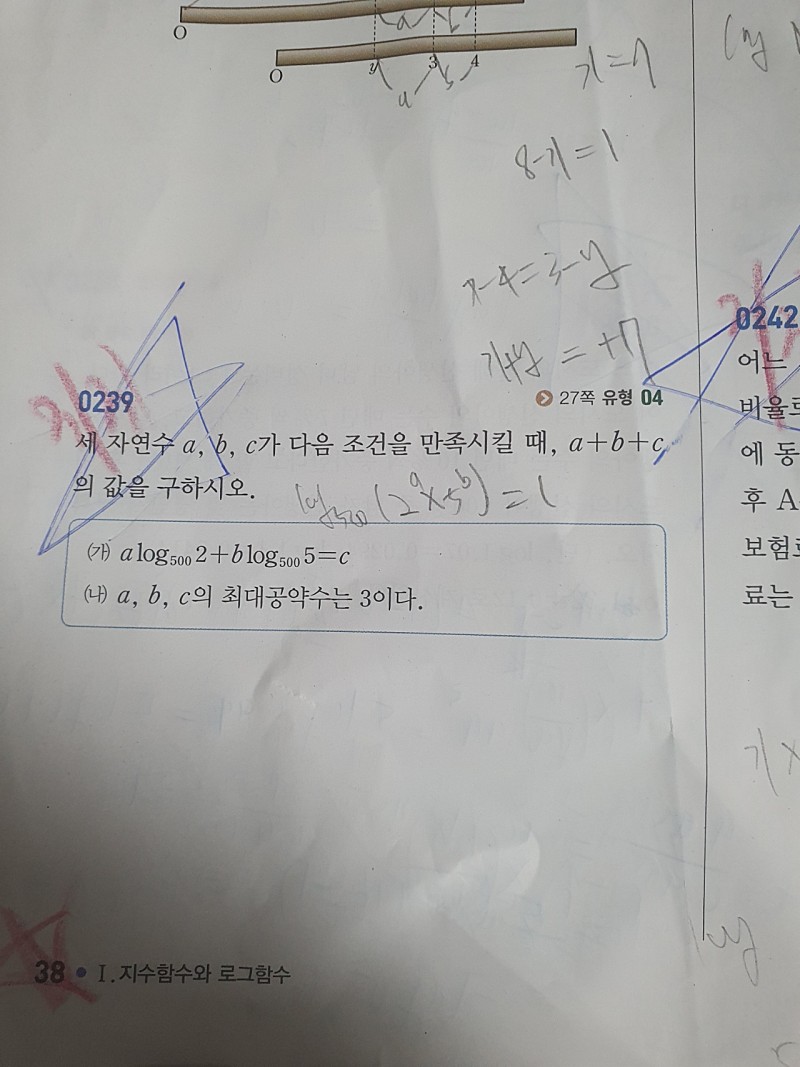 O
a
O
y
3
4
a
b
8-x=1
x-4=3-y
x+y = +7
0242
어느
비율로
에 동
후 A
보험료
료는
0239
27쪽 유형 04
세 자연수 a, b, c가 다음 조건을 만족시킬 때, a+b+c
의 값을 구하시오.
log₅₀₀(2ᵃ×5ᵇ)=1
㈎ a log₅₀₀ 2+b log₅₀₀ 5=c
㈏ a, b, c의 최대공약수는 3이다.
38 • Ⅰ. 지수함수와 로그함수